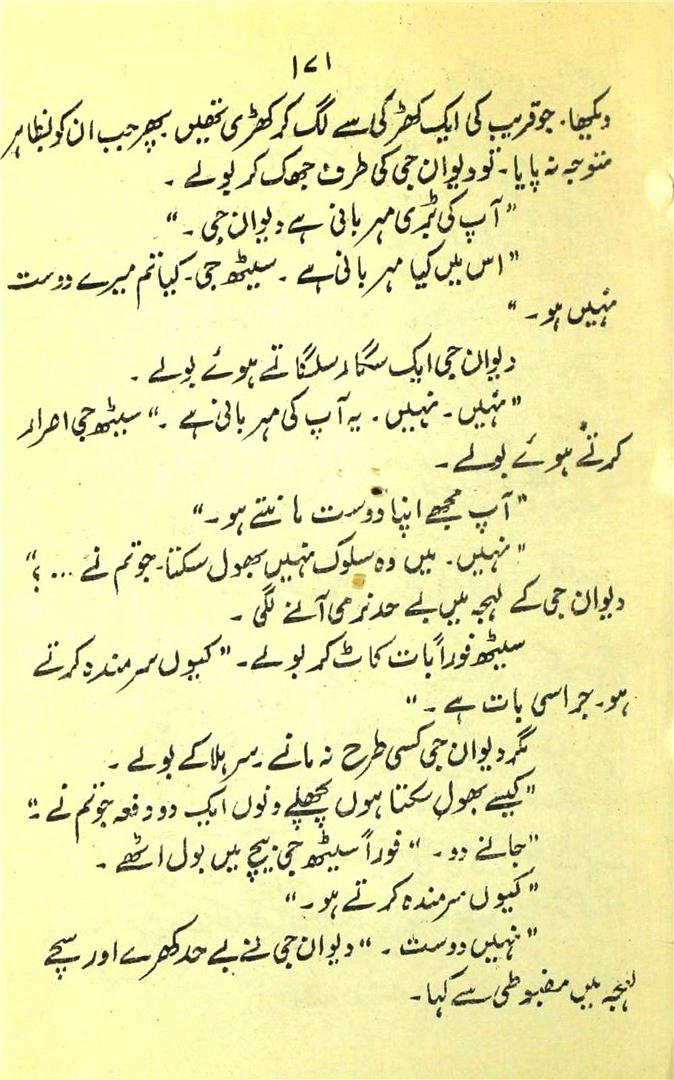 ۱۷۱
دیکھا۔ جو قریب کی ایک کھڑکی سے لگ کر کھڑی تھیں پھر جب ان کو بظاہر
متوجہ نہ پایا۔ تو دیوان جی کی طرف جھک کر بولے۔
"آپ کی بڑی مہربانی ہے دیوان جی۔"
"اس میں کیا مہربانی ہے۔ سیٹھ جی۔ کیا تم میرے دوست
نہیں ہو۔"
دیوان جی ایک سگار سلگاتے ہوئے بولے۔
"نہیں۔ نہیں۔ یہ آپ کی مہربانی ہے۔" سیٹھ جی اصرار
کرتے ہوئے بولے۔
"آپ مجھے اپنا دوست مانتے ہو۔"
"نہیں۔ میں وہ سلوک نہیں بھول سکتا۔ جو تم نے ...؟"
دیوان جی کے لہجہ میں بے حد نرمی آنے لگی۔
سیٹھ فوراً بات کاٹ کر بولے۔ "کیوں سرمندہ کرتے
ہو۔ جراسی بات ہے۔"
مگر دیوان جی کسی طرح نہ مانے۔ سر ہلا کے بولے۔
"کیسے بھول سکتا ہوں پچھلے دنوں ایک دو دفعہ جو تم نے۔"
"جانے دو۔" فوراً سیٹھ جی بیچ میں بول اٹھے۔
"کیوں سرمندہ کرتے ہو۔"
"نہیں دوست۔" دیوان جی نے بے حد کھرے اور سچے
لہجہ میں مضبوطی سے کہا۔